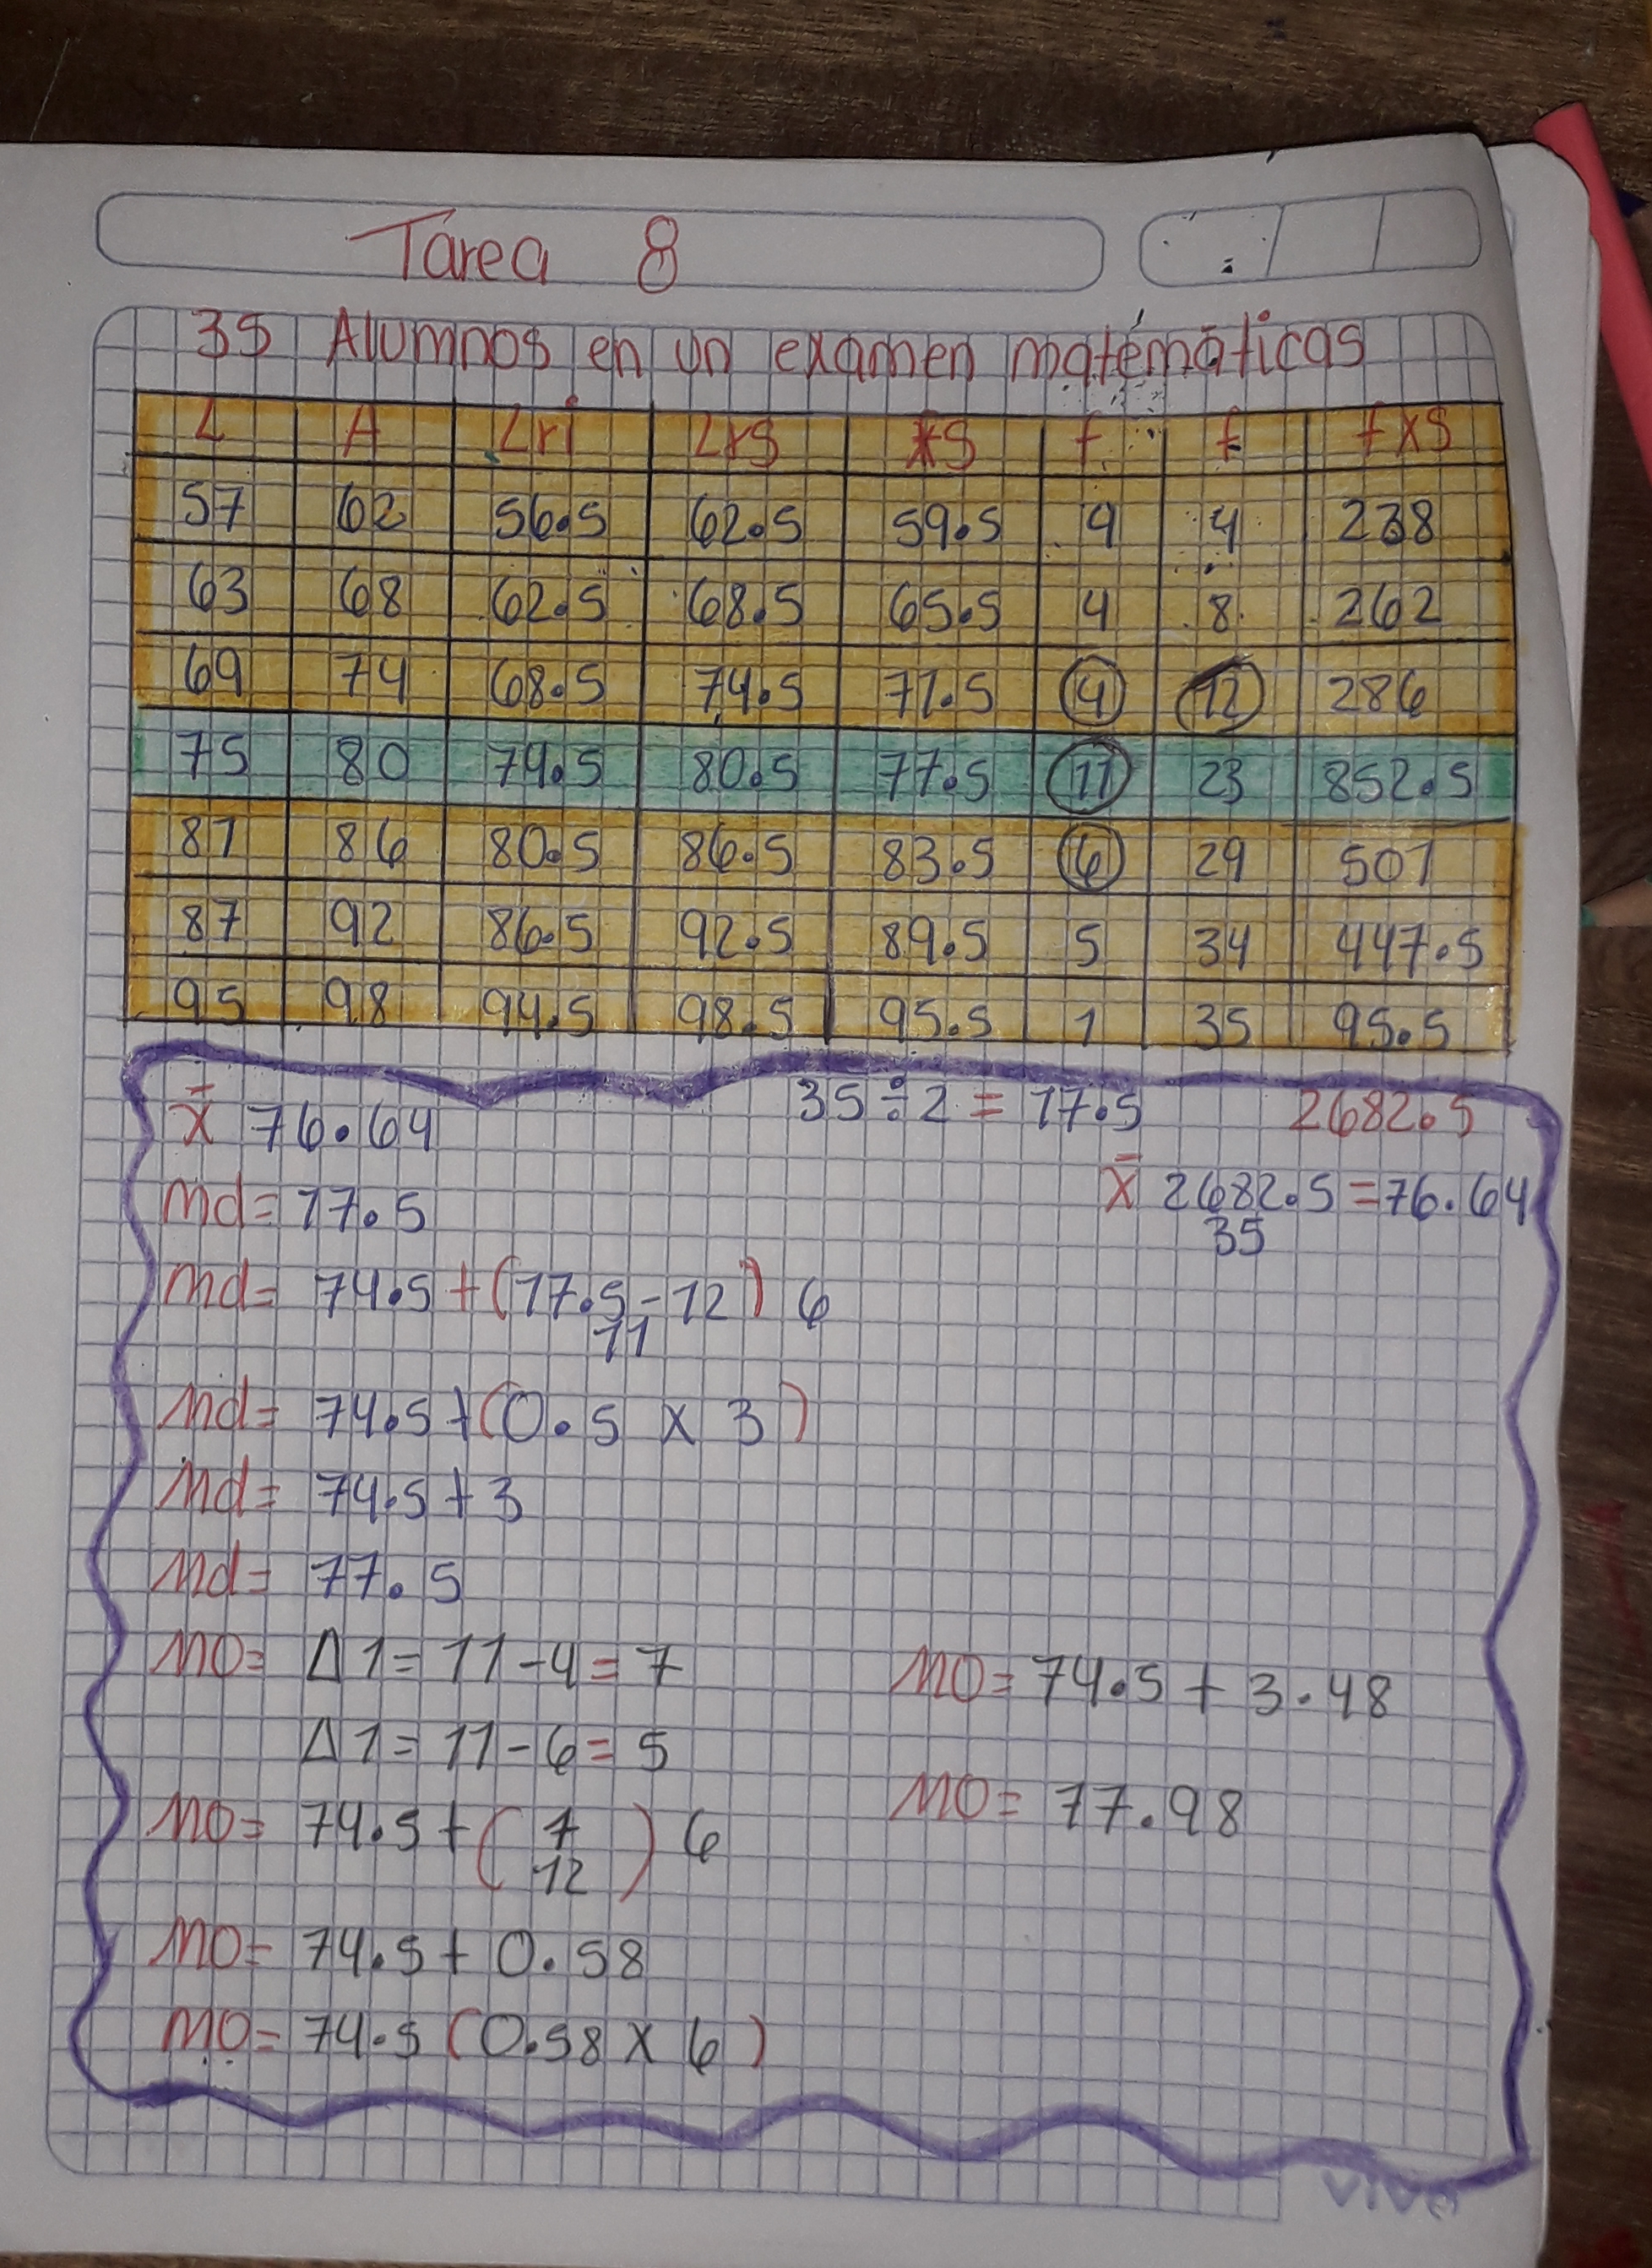 Tarea 8
35 Alumnos en un examen matématicas
L A Lri Lrs xs f f fxs
57 62 56.5 62.5 59.5 4 4 238
63 68 62.5 68.5 65.5 4 8 262
69 74 68.5 74.5 71.5 4 12 286
75 80 74.5 80.5 77.5 11 23 852.5
81 86 80.5 86.5 83.5 6 29 501
87 92 86.5 92.5 89.5 5 34 447.5
95 98 94.5 98.5 95.5 1 35 95.5
x̄ 76.64 35÷2=17.5 2682.5
md=17.5 x̄ 2682.5=76.64
35
md= 74.5+(17.5-12) 6
11
Md= 74.5+(0.5 x 3)
Md= 74.5+3
Md= 77.5
MO= Δ1=11-4=7 MO=74.5+3.48
Δ1=11-6=5
MO= 74.5+(7) 6 MO= 77.98
12
MO= 74.5+0.58
MO= 74.5(0.58x6)
vivo